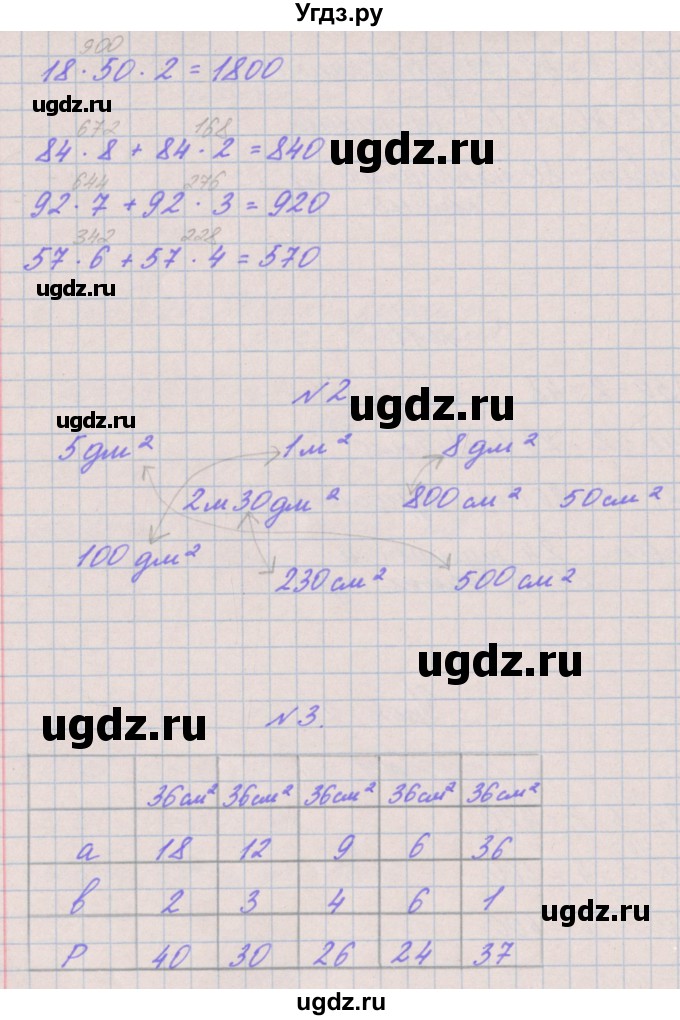 Угдз.ру
900
18 · 50 · 2 = 1800
ugdz.ru
672 168
84 · 8 + 84 · 2 = 840
ugdz.ru
644 276
92 · 7 + 92 · 3 = 920
342 228
57 · 6 + 57 · 4 = 570
ugdz.ru
N2
ugdz.ru
ugdz.ru
5дм² 1м² 8дм²
2м 30дм² 800см² 50см²
100дм²
230см² 500см²
ugdz.ru
ugdz.ru
N3.
36см² 36см² 36см² 36см² 36см²
а 18 12 9 6 36
в 2 3 4 6 1
ugdz.ru
Р 40 30 26 24 37
ugdz.ru